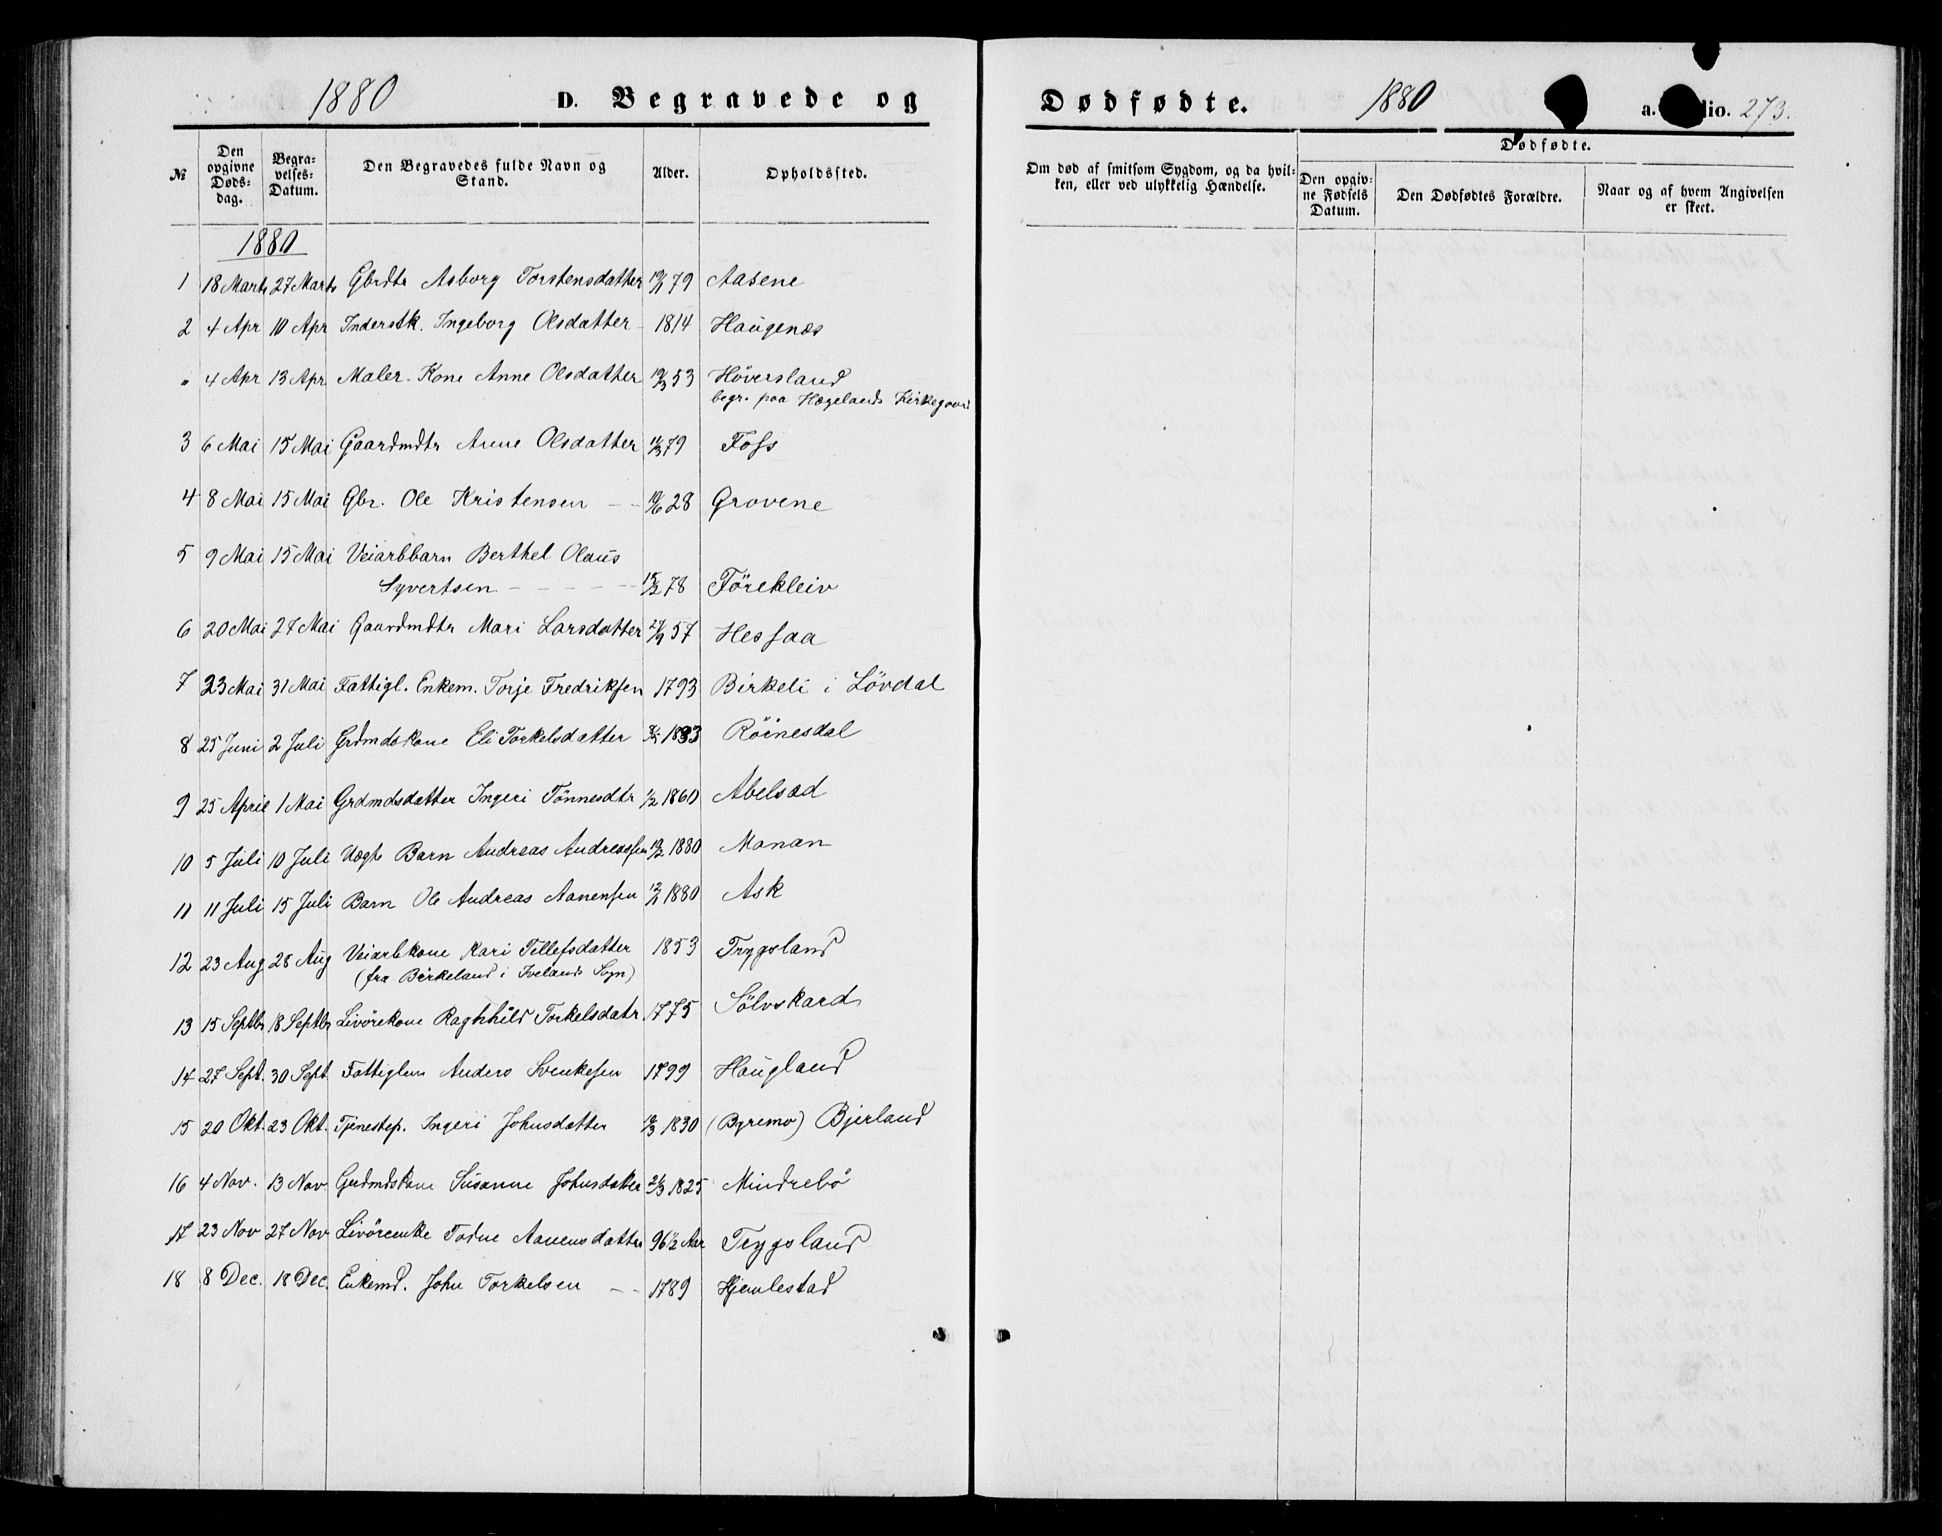 1880
D. Begravede og
№
Den opgivne Døds-dag.
Begra-velses-Datum.
Den Begravedes fulde Navn og Stand.
Alder.
Opholdssted.
1880
1 18 Marts 27 Marts Gbrdtr Asborg Torstensdatter 79 Aasene
2 4 Apr 10 Apr Inderstk. Ingeborg Olsdatter 1814 Haugenæs
" 4 Apr 13 Apr Maler-Kone Anne Olsdatter 53 Höversland
begr. paa Hægelands Kirkegaard
3 6 Mai 15 Mai Gaardmdtr Anne Olsdatter 79 Foss
4 8 Mai 15 Mai Gbr. Ole Kristensen - - 28 Grovene
5 9 Mai 15 Mai Veiarbbarn Berthel Olaus
Syvertsen - - - - - 15/2 78 Förekleiv
6 20 Mai 27 Mai Gaardmdtr Mari Larsdatter 57 Hessaa
7 23 Mai 31 Mai Fattigl. Enkem. Torje Fredriksen 1793 Birkeli i Lövdal
8 25 Juni 2 Juli Grdmdskone Eli Torkelsdatter Röinesdal
9 25 April 1 Mai Grdmdsdatter Ingeri Tönnesdtr 1/2 1860 Abelsæd
10 5 Juli 10 Juli Uægt Barn Andreas Andreassen 1880 Monan
11 11 Juli 15 Juli Barn Ole Andreas Aanensen 1880 Ask
12 23 Aug 28 Aug Veiarbkone Kari Tellefsdatter 1853 Trygsland
(fra Birkeland i Ivelands Sogn)
13 15 Septbr 18 Septbr Livörekone Raghnild Torkelsdatr 1775 Sölvskard
14 27 Sept. 30 Sept Fattiglem Anders Svenkesen 1799 Haugland
15 20 Okt. 23 Okt. Tjenestep. Ingeri Johnsdatter (Byremo) Bjerland
16 4 Nov. 13 Nov Grdmdskone Susanne Johnsdatter 1825 Mindrebö
17 23 Nov 27 Nov Livöreenke Todne Aanensdatter 96½ Aar Trygsland
18 8 Dec. 18 Dec. Enkemd. John Torkelsen - - 1789 Hjemlestad
Dødfødte.
1880
a.
lio. 273.
Om død af smitsom Sygdom, og da hvil-ken, eller ved ulykkelig Hændelse.
Dødfødte.
Den opgiv-ne Fødsels Datum.
Den Dødfødtes Forældre.
Naar og af hvem Angivelsen er skeet.